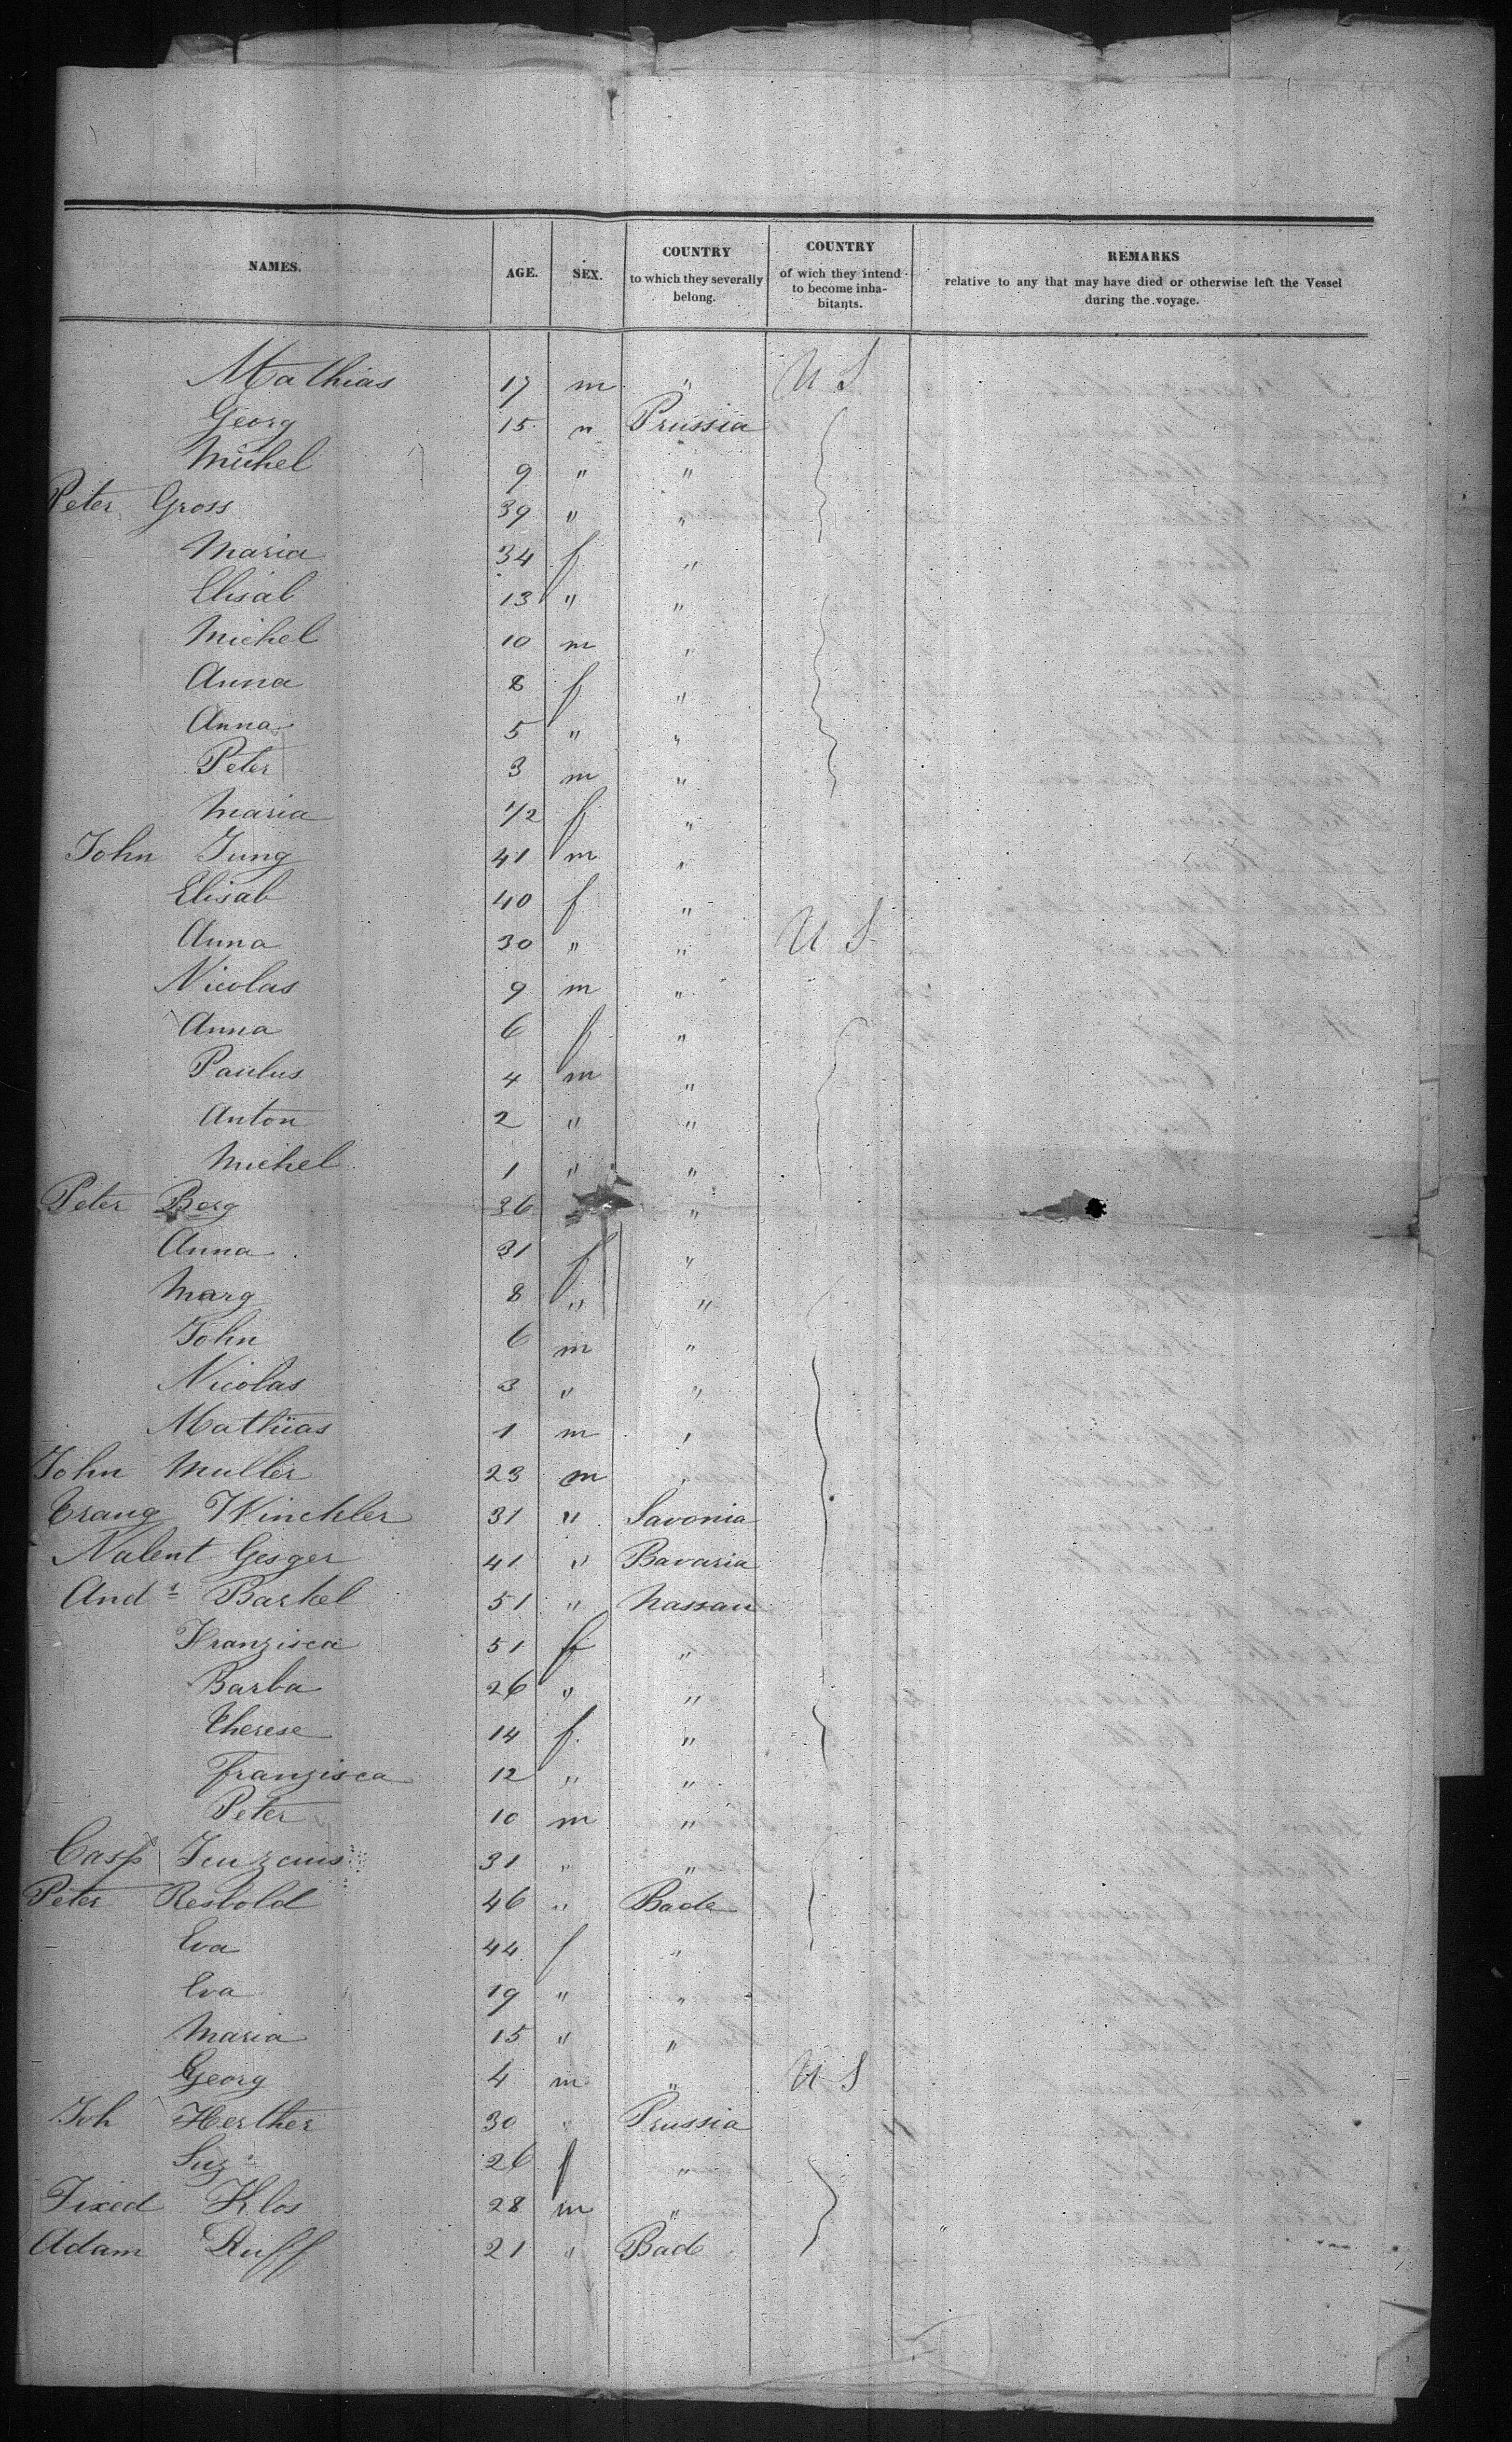 NAMES. AGE. SEX. COUNTRY to which they severally belong. COUNTRY of wich they intend to become inhabitants. REMARKS relative to any that may have died or otherwise left the Vessel during the voyage.
Mathias 17 m " U S
Georg 15 " Prussia
Michel 9 " "
Peter Gross 39 " "
Maria 34 f "
Elisab 13 " "
Michel 10 m "
Anna 8 f "
Anna 5 " "
Peter 3 m "
Maria 1/2 f "
John Jung 41 m "
Elisab 40 f "
Anna 30 " " U S
Nicolas 9 m "
Anna 6 f "
Paulus 4 m "
Anton 2 " "
Michel 1 " "
Peter Berg 36 "
Anna 31 f "
Marg 8 " "
John 6 m "
Nicolas 3 " "
Mathias 1 m "
John Muller 23 m "
Traug Winckler 31 " Saxonia
Valent Gesger 41 " Bavaria
And Barkel 51 " Nassau
Franzisca 51 f "
Barba 26 " "
Therese 14 f "
Franzisca 12 " "
Peter 10 m "
Casp 31 " "
Peter Restold 46 " Bade
Eva 44 f "
Eva 19 " "
Maria 15 " "
Georg 4 m " U S
Joh Herther 30 " Prussia
Suz 26 f "
Klos 28 m "
Adam Ruff 21 " Bade